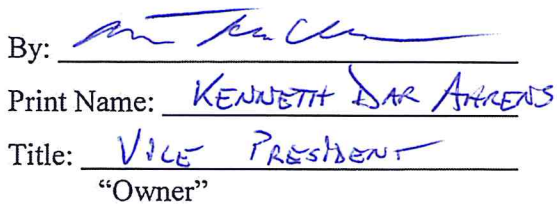 By:
Print Name: KENNETH DAR AHRENS
Title: VICE PRESIDENT
"Owner"